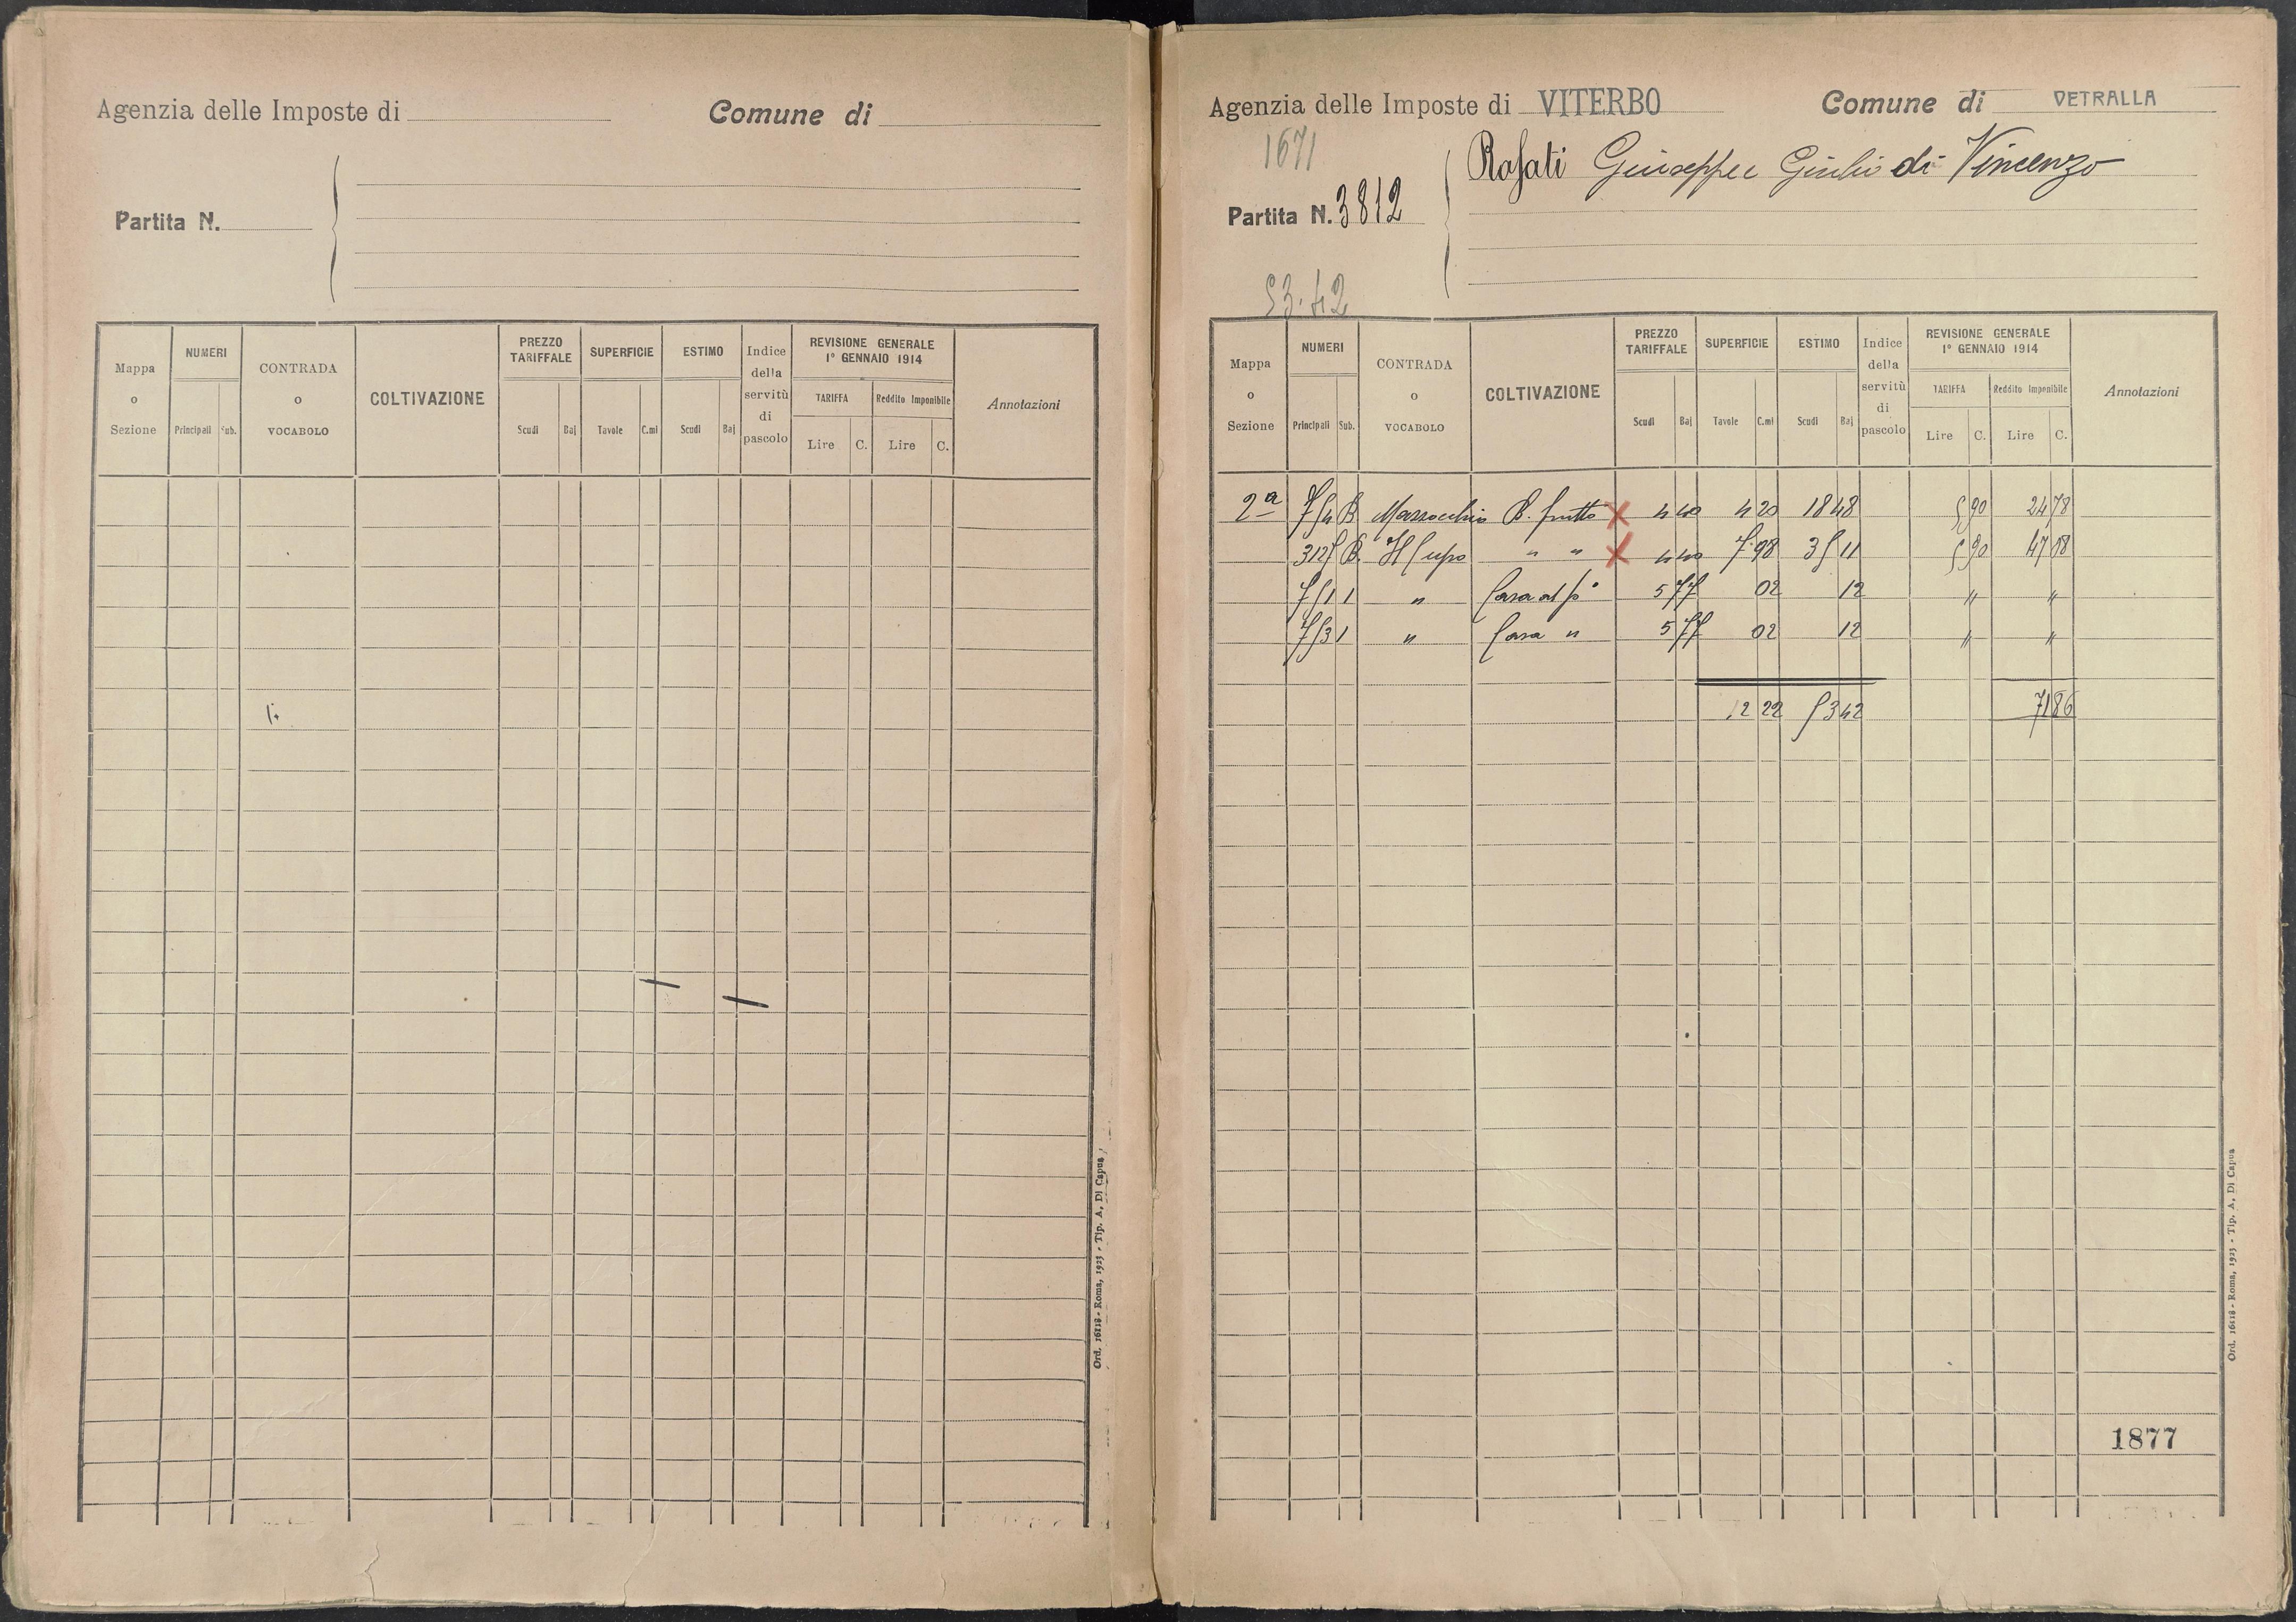 Agenzia delle Imposte di
Comune di
Partita N.
Mappa o Sezione | NUMERI Principali Sub. | CONTRADA o VOCABOLO | COLTIVAZIONE | PREZZO TARIFFALE Scudi Baj | SUPERFICIE Tavole C.mi | ESTIMO Scudi Baj | Indice della servitù di pascolo | REVISIONE GENERALE 1° GENNAIO 1914 TARIFFA Lire C. Reddito Imponibile Lire C. | Annotazioni
Ord. 16118 - Roma, 1923 - Tip. A. Di Capua
Agenzia delle Imposte di VITERBO
Comune di VETRALLA
1671
Rosati Giuseppe Giulio di Vincenzo
Partita N. 3812
53.42
Mappa o Sezione | NUMERI Principali Sub. | CONTRADA o VOCABOLO | COLTIVAZIONE | PREZZO TARIFFALE Scudi Baj | SUPERFICIE Tavole C.mi | ESTIMO Scudi Baj | Indice della servitù di pascolo | REVISIONE GENERALE 1° GENNAIO 1914 TARIFFA Lire C. Reddito Imponibile Lire C. | Annotazioni
2a 754 B B. frutto X 4 40 4 20 18 48 5 90 24 78
B " " X 4 40 7 98 35 11 5 90 47 08
751 1 " Casa 5 77 02 12 " "
753 1 " Casa " 5 77 02 12 " "
12 22 53 42 71 86
1877
Ord. 16118 - Roma, 1923 - Tip. A. Di Capua